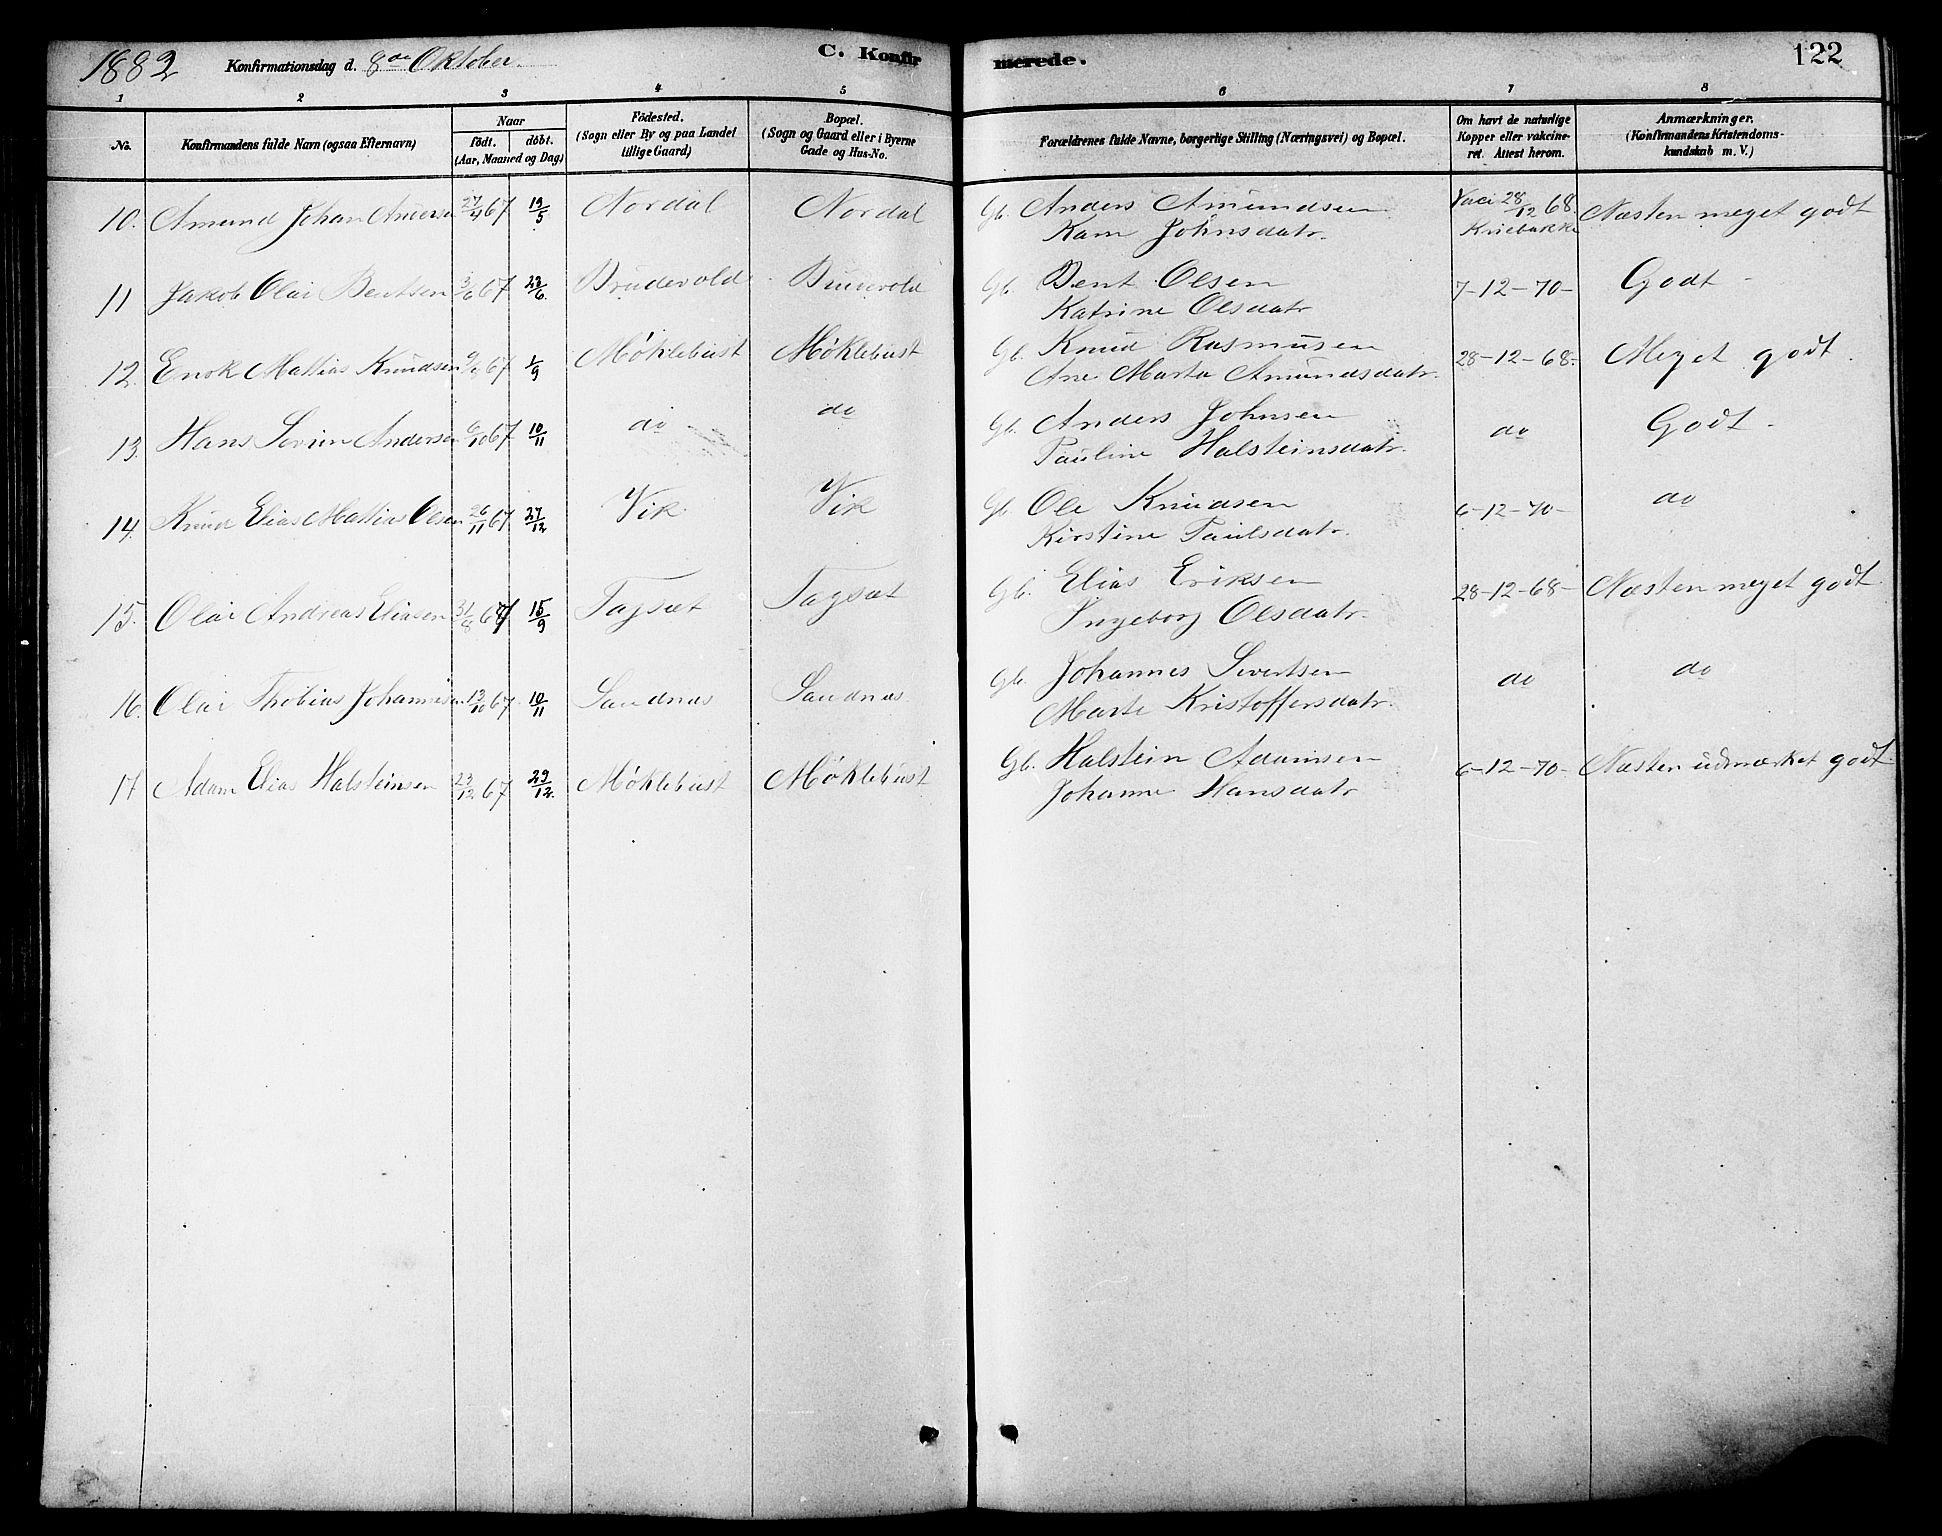 1882 Konfirmationsdag d. 8de Oktober. C. Konfirmerede. 122
1 2 3 4 5 6 7 8
No. Konfirmandens fulde Navn (ogsaa Efternavn) Naar født. døbt. (Aar, Maaned og Dag) Fødested. (Sogn eller By og paa Landet tillige Gaard) Bopæl. (Sogn og Gaard eller i Byerne Gade og Hus-No. Forældrenes fulde Navne, borgerlige Stilling (Næringsvei) og Bopæl. Om havt de naturlige Kopper eller vakcineret. Attest herom. Anmærkninger. (Konfirmandens Kristendomskundskab m. V.)
10. Amund Johan Andersen 27/4 67 19/5 Nordal Nordal Gb. Anders Amundsen Vacc 28/12 68. Næsten meget godt
Johnsdatr.
11 Jakob Olai Bentsen 3/6 67 23/6. Brudevold Brudevold Gb. Bent Olsen 7-12-70- Godt -
Katrine Olsdatr
12. Mattias Knudsen 67 1/9 Møklebust Møklebust Gb. Knud Rasmusen 28-12-68- Meget godt.
Ane Marta Amundsdatr.
13. Hans Andersen 6/10 67. 10/11 do do Gb. Anders Johnsen do Godt -
Pauline Halsteinsdatr.
14. Knud Elias Mattias Olsen 26/11 67. 27/12 Vik Vik Gb. Ole Knudsen 6-12-70- do
Kirstine Paulsdatr.
15. Olai Andreas Eliasen 31/8 67 15/9 Tagsæt Tagsæt Gb. Elias Eriksen 28-12-68- Næsten meget godt
Ingeborg Olsdatr.
16. Olai Thobias Johannesen 13/10 67 10/11 Sandnæs Sandnæs Gb. Johannes Sivertsen do do
Marte Kristoffersdatr.
17 Adam Elias Halsteinsen 23/12 67 29/12. Møklebust Møklebust Gb. Halstein Adamsen 6-12-70- Næsten udmærket godt
Johanne Hansdatr